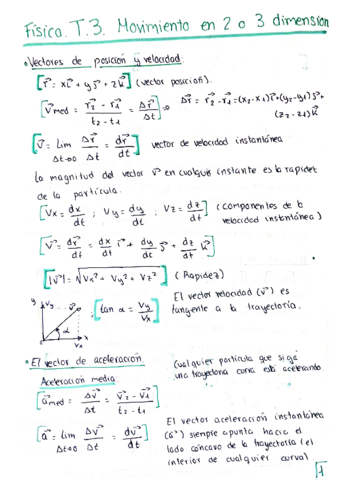 Física. T.3. Movimiento en 2 o 3 dimension
• Vectores de posición y velocidad.
[r⃗ = xi⃗ + yj⃗ + zk⃗] (vector posición).
[v⃗med = (r⃗2 - r⃗1)/(t2 - t1) = Δr⃗/Δt] ⇒ Δr⃗ = r⃗2 - r⃗1 = (x2-x1)i⃗ + (y2-y1)j⃗ +
(z2-z1)k⃗
[v⃗ = lim Δt→0 Δr⃗/Δt = dr⃗/dt] vector de velocidad instantánea
La magnitud del vector v⃗ en cualquier instante es la rapidez
de la partícula.
[Vx = dx/dt ; Vy = dy/dt ; Vz = dz/dt] (componentes de
velocidad instantánea)
[v⃗ = dr⃗/dt = dx/dt i⃗ + dy/dt j⃗ + dz/dt k⃗]
[|v⃗| = √(Vx² + Vy² + Vz²)] (Rapidez)
y Vy v⃗ α Vx x
[tan α = Vy/Vx]
El vector velocidad (v⃗) es
tangente a la trayectoria.
• El vector de aceleración.
Cualquier partícula que siga
una trayectoria curva está acelerando.
Aceleración media:
[a⃗med = Δv⃗/Δt = (v⃗2 - v⃗1)/(t2 - t1)]
[a⃗ = lim Δt→0 Δv⃗/Δt = dv⃗/dt]
El vector aceleración instantánea
(a⃗) siempre apunta hacia el
lado cóncavo de la trayectoria (el
interior de cualquier curva)
1